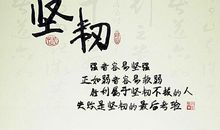 坚韧
强者容易坚强
正如弱者容易软弱
胜利属于坚韧不拔的人
失败是坚韧的最后考验